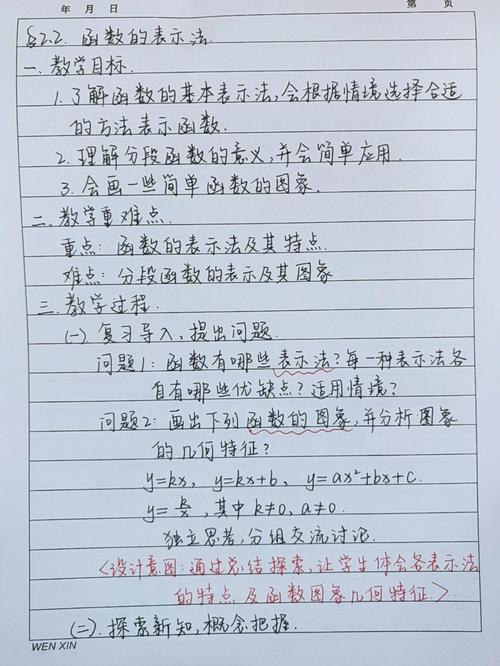 年 月 日 第 页
§2.2. 函数的表示法.
一. 教学目标.
1. 了解函数的基本表示法, 会根据情境选择合适
的方法表示函数.
2. 理解分段函数的意义, 并会简单应用.
3. 会画一些简单函数的图象.
二. 教学重难点.
重点: 函数的表示法及其特点.
难点: 分段函数的表示及其图象.
三. 教学过程.
(一) 复习导入, 提出问题.
问题1: 函数有哪些表示法? 每一种表示法各
自有哪些优缺点? 适用情境?
问题2: 画出下列函数的图象, 并分析图象
的几何特征?
y=kx, y=kx+b, y=ax²+bx+c.
y=k/x, 其中 k≠0, a≠0.
独立思考, 分组交流讨论.
<设计意图: 通过总结探索, 让学生体会各表示法
的特点及函数图象几何特征.>
(二). 探索新知, 概念把握.
WEN XIN